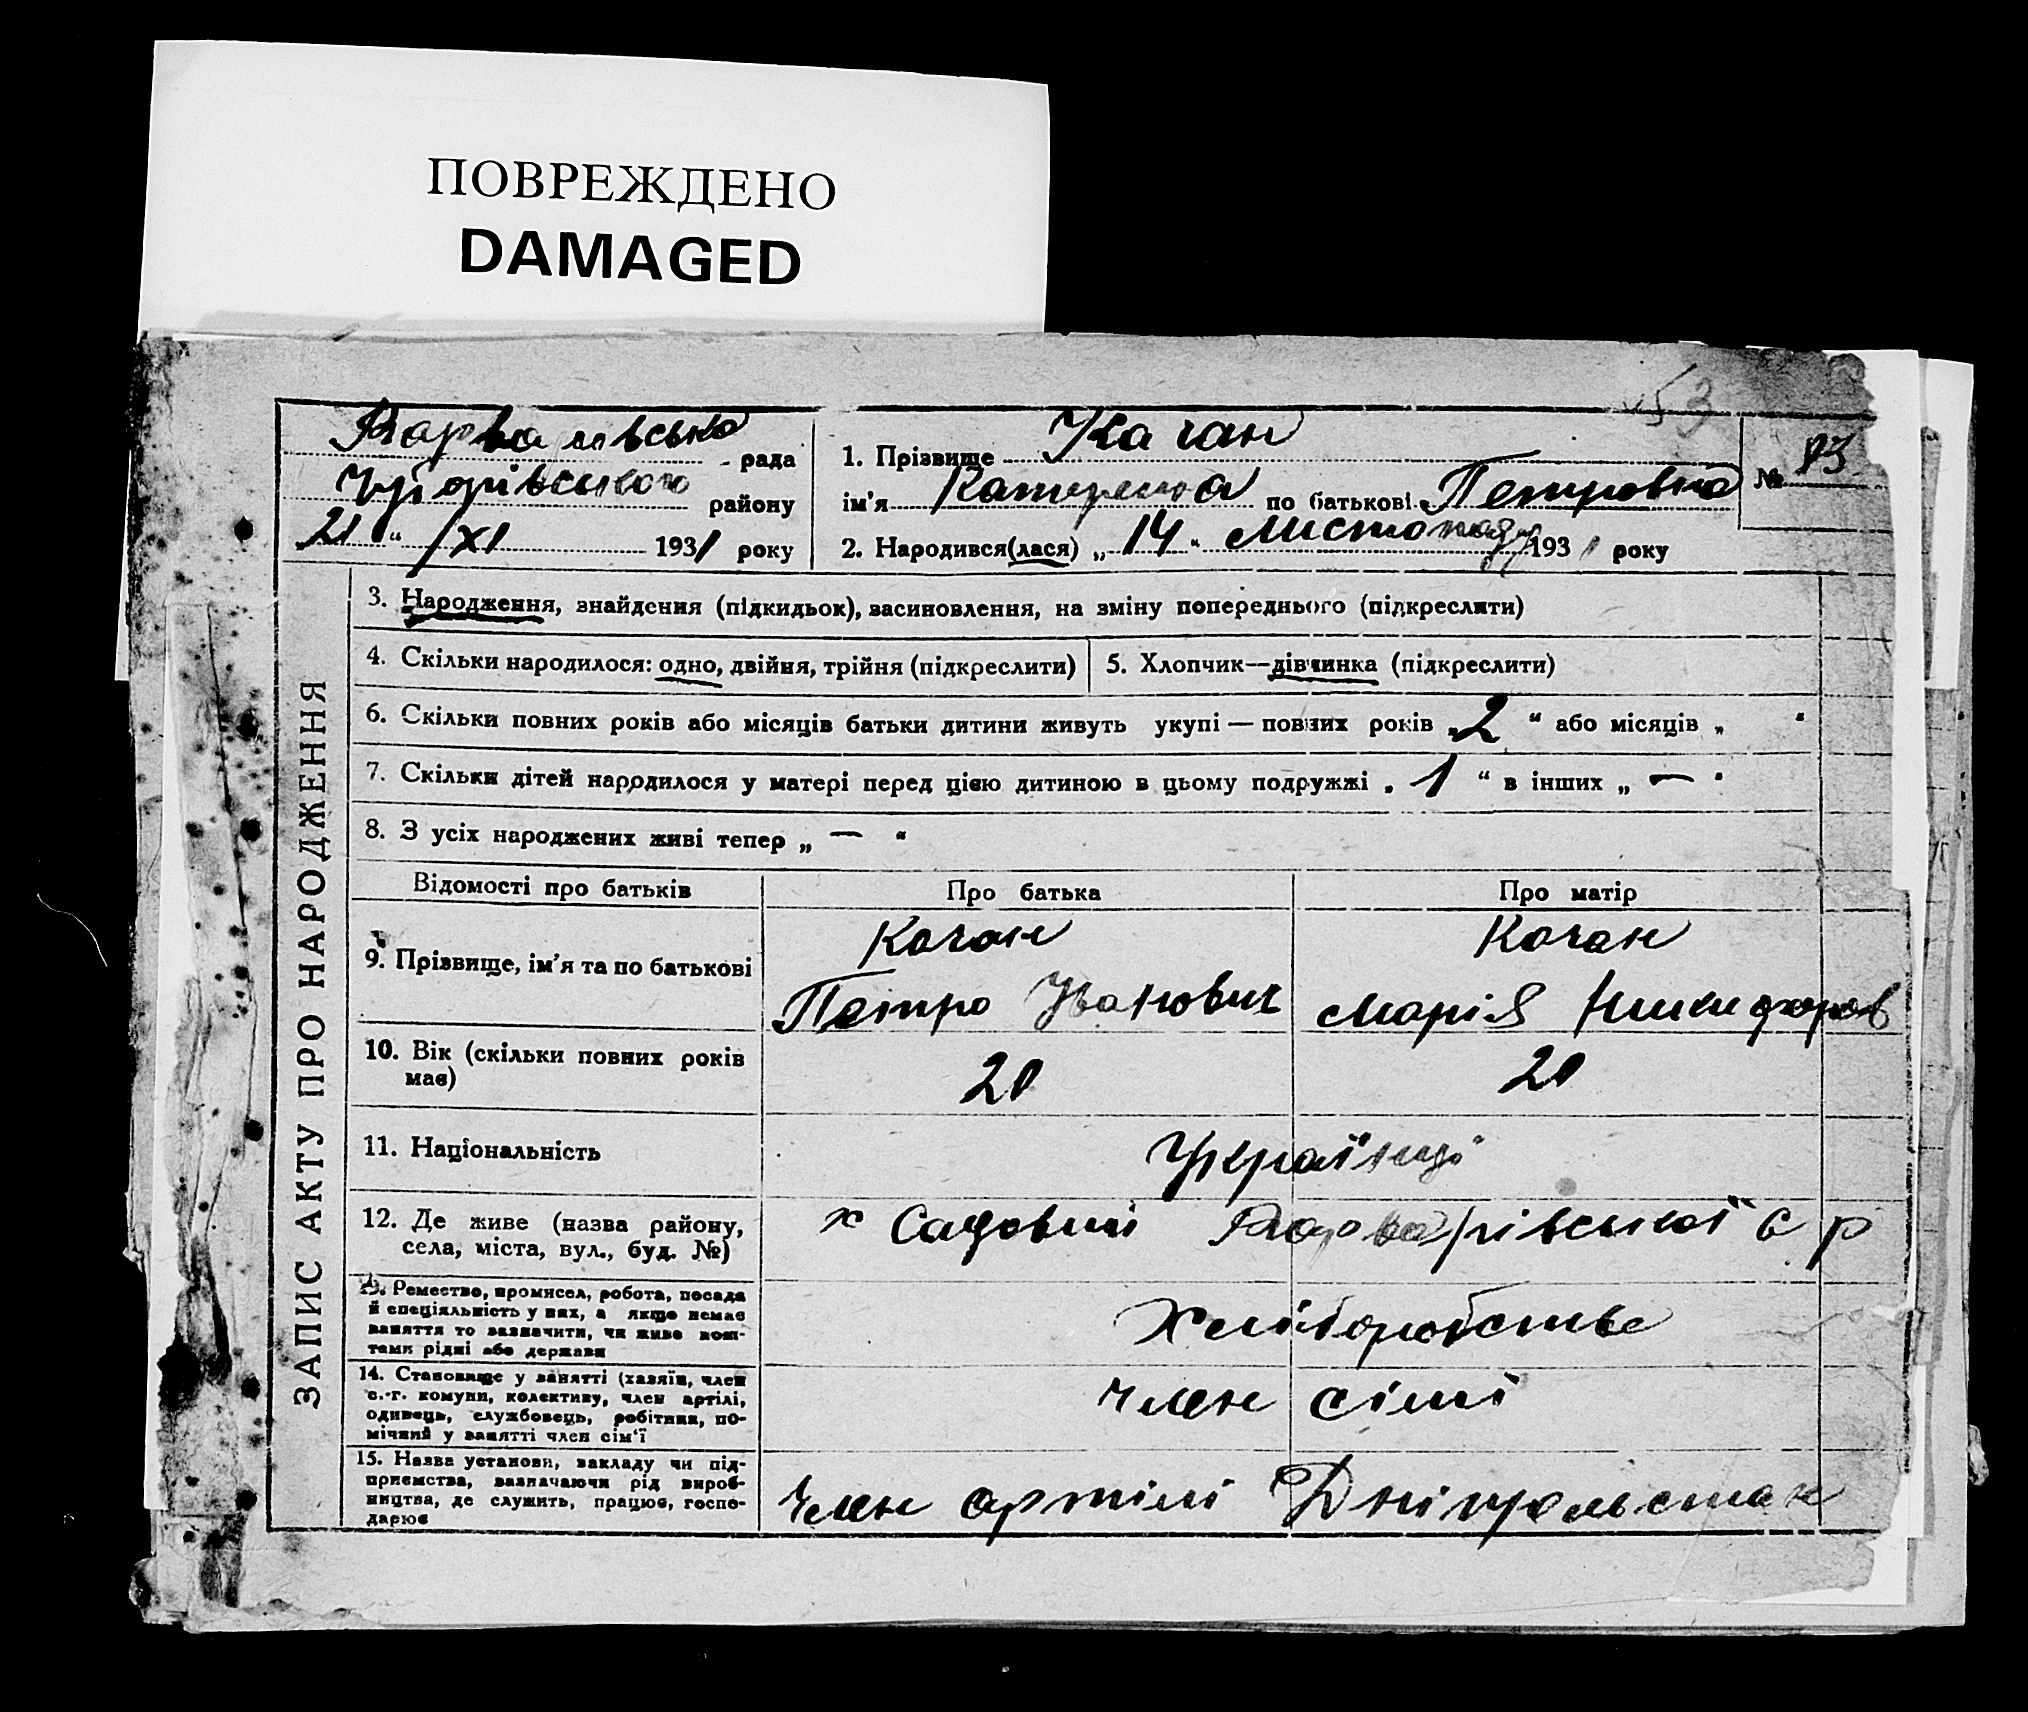 ПОВРЕЖДЕНО
DAMAGED
53
рада
району
21 " /XI 1931 року
1. Прізвище Качан
ім'я Катерина по батькові Петровна
2. Народився(лася) „ 14 " Листопаду 1931 року
№ 83
ЗАПИС АКТУ ПРО НАРОДЖЕННЯ
3. Народження, знайдення (підкидьок), засиновлення, на зміну попереднього (підкреслити)
4. Скільки народилося: одно, двійня, трійня (підкреслити)
5. Хлопчик—дівчинка (підкреслити)
6. Скільки повних років або місяців батьки дитини живуть укупі — повних років „ 2 " або місяців „ "
7. Скільки дітей народилося у матері перед цією дитиною в цьому подружжі „ 1 " в інших „ — "
8. З усіх народжених живі тепер „ — "
Відомості про батьків
Про батька
Про матір
9. Прізвище, ім'я та по батькові
Качан
Петро Иванович
Качан
Марія Никифоров
10. Вік (скільки повних років
має)
20
20
11. Національність
Українці
12. Де живе (назва району,
села, міста, вул., буд. №)
х Садовий С р
13. Ремество, промисел, робота, посада
й спеціяльність у них, а якщо немає
заняття то зазначити, чи живе кош-
тами рідні або держави
Хліборобство
14. Становище у занятті (хазяїн, член
с.-г. комуни, колективу, член артілі,
одинець, службовець, робітник, по-
мічний у занятті член сім'ї
член сімі
15. Назва установи, закладу чи під-
приємства, зазначаючи рід вироб-
ництва, де служить, працює, госпо-
дарює
Член артілі Дніпрельстан